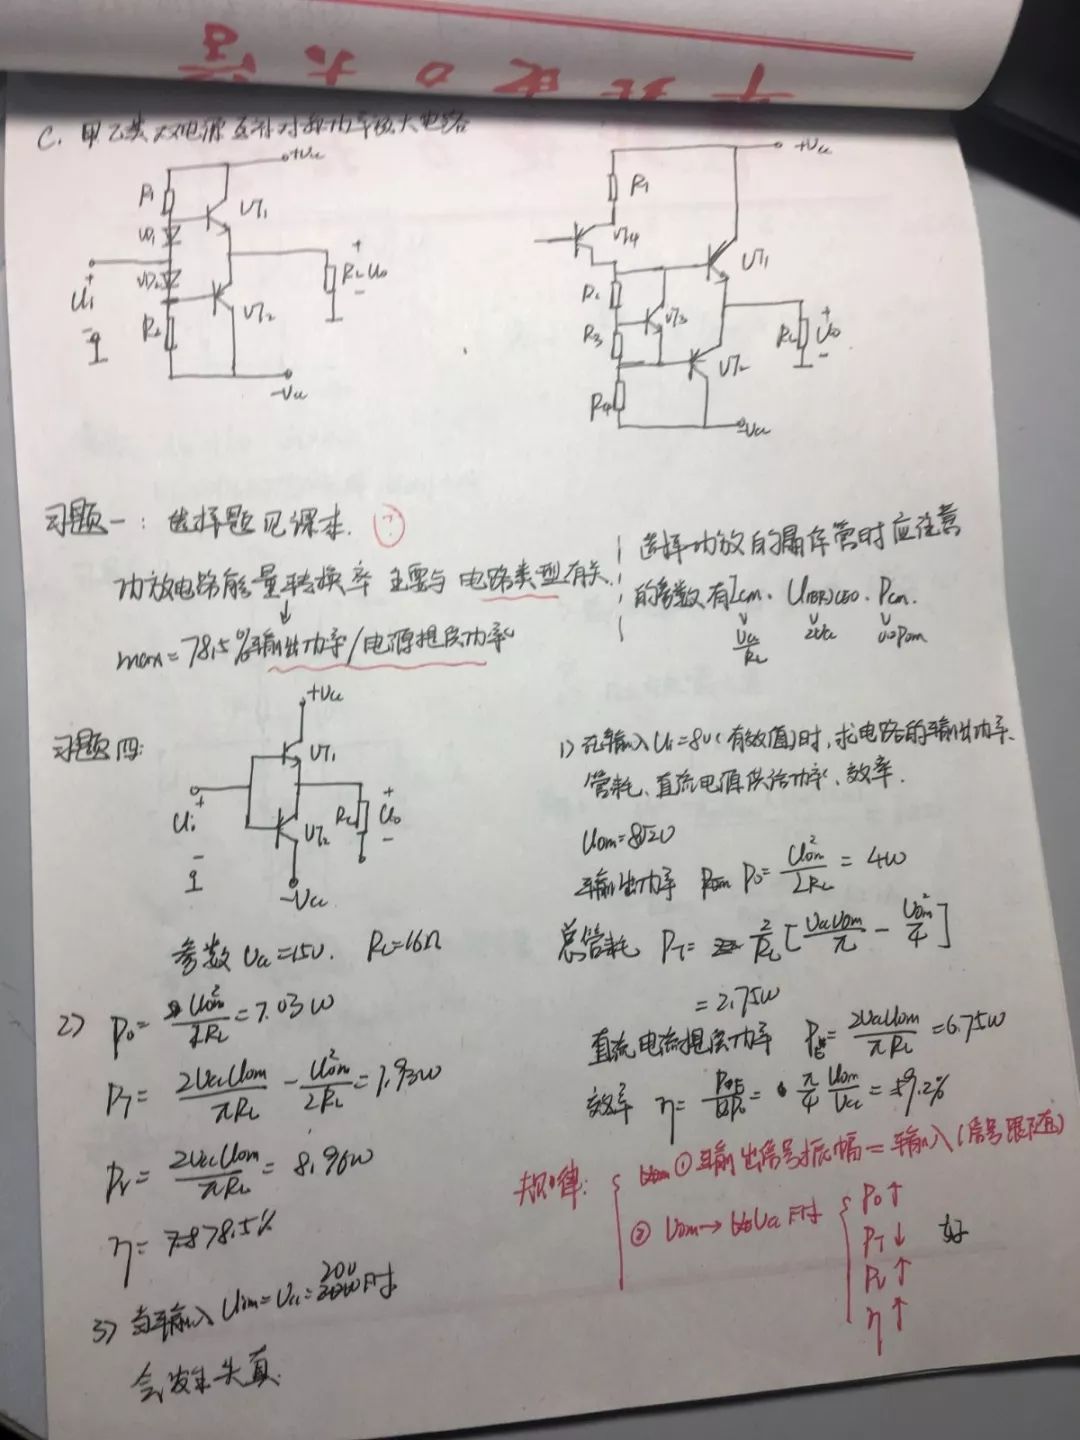 C. 甲乙类双电源互补对称功率放大电路
+Vcc
R1
VT1
VD1
VD2
Ui
+
-
R2
VT2
RL
Uo
+
-
-Vcc
+Vcc
R1
VT4
VT1
R2
VT3
R3
RL
Uo
+
-
VT2
R4
-Vcc
习题一: 选择题见课本. ?
功放电路能量转换率 主要与 电路类型有关.
max=78.5% 输出功率/电源提供功率
选择功放的晶体管时应注意
的参数有Icm. U(BR)CEO. Pcm.
Vcc/RL 2Vcc 0.2Pom
习题四:
+Vcc
VT1
Ui
+
-
VT2
RL
Uo
+
-
-Vcc
参数 Vcc=15V. RL=16Ω
1) 在输入Ui=8V(有效值)时,求电路的输出功率.
管耗、直流电源供给功率、效率.
Uom=8√2V
输出功率 Po=Uom²/2RL=4W
总管耗 PT= 2/RL[VccUom/π - Uom²/4]
=2.75W
直流电流提供功率 PE=2VccUom/πRL=6.75W
效率 η= = π/4 Uom/Vcc=59.2%
2) Po= Uom²/2RL=7.03W
PT= 2VccUom/πRL - Uom²/2RL=1.93W
Pv= 2VccUom/πRL= 8.96W
η= 78.5%
3) 当输入Uim=Vcc=20V时
会发生失真.
规律: ①输出信号振幅=输入(信号跟随)
② Uom→Vcc时
Po↑
PT↓ 好
Pv↑
η↑